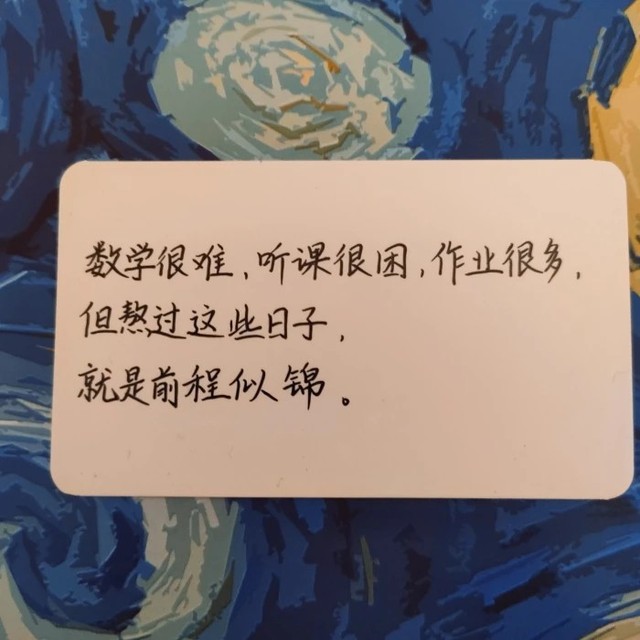 数学很难,听课很困,作业很多,
但熬过这些日子,
就是前程似锦。